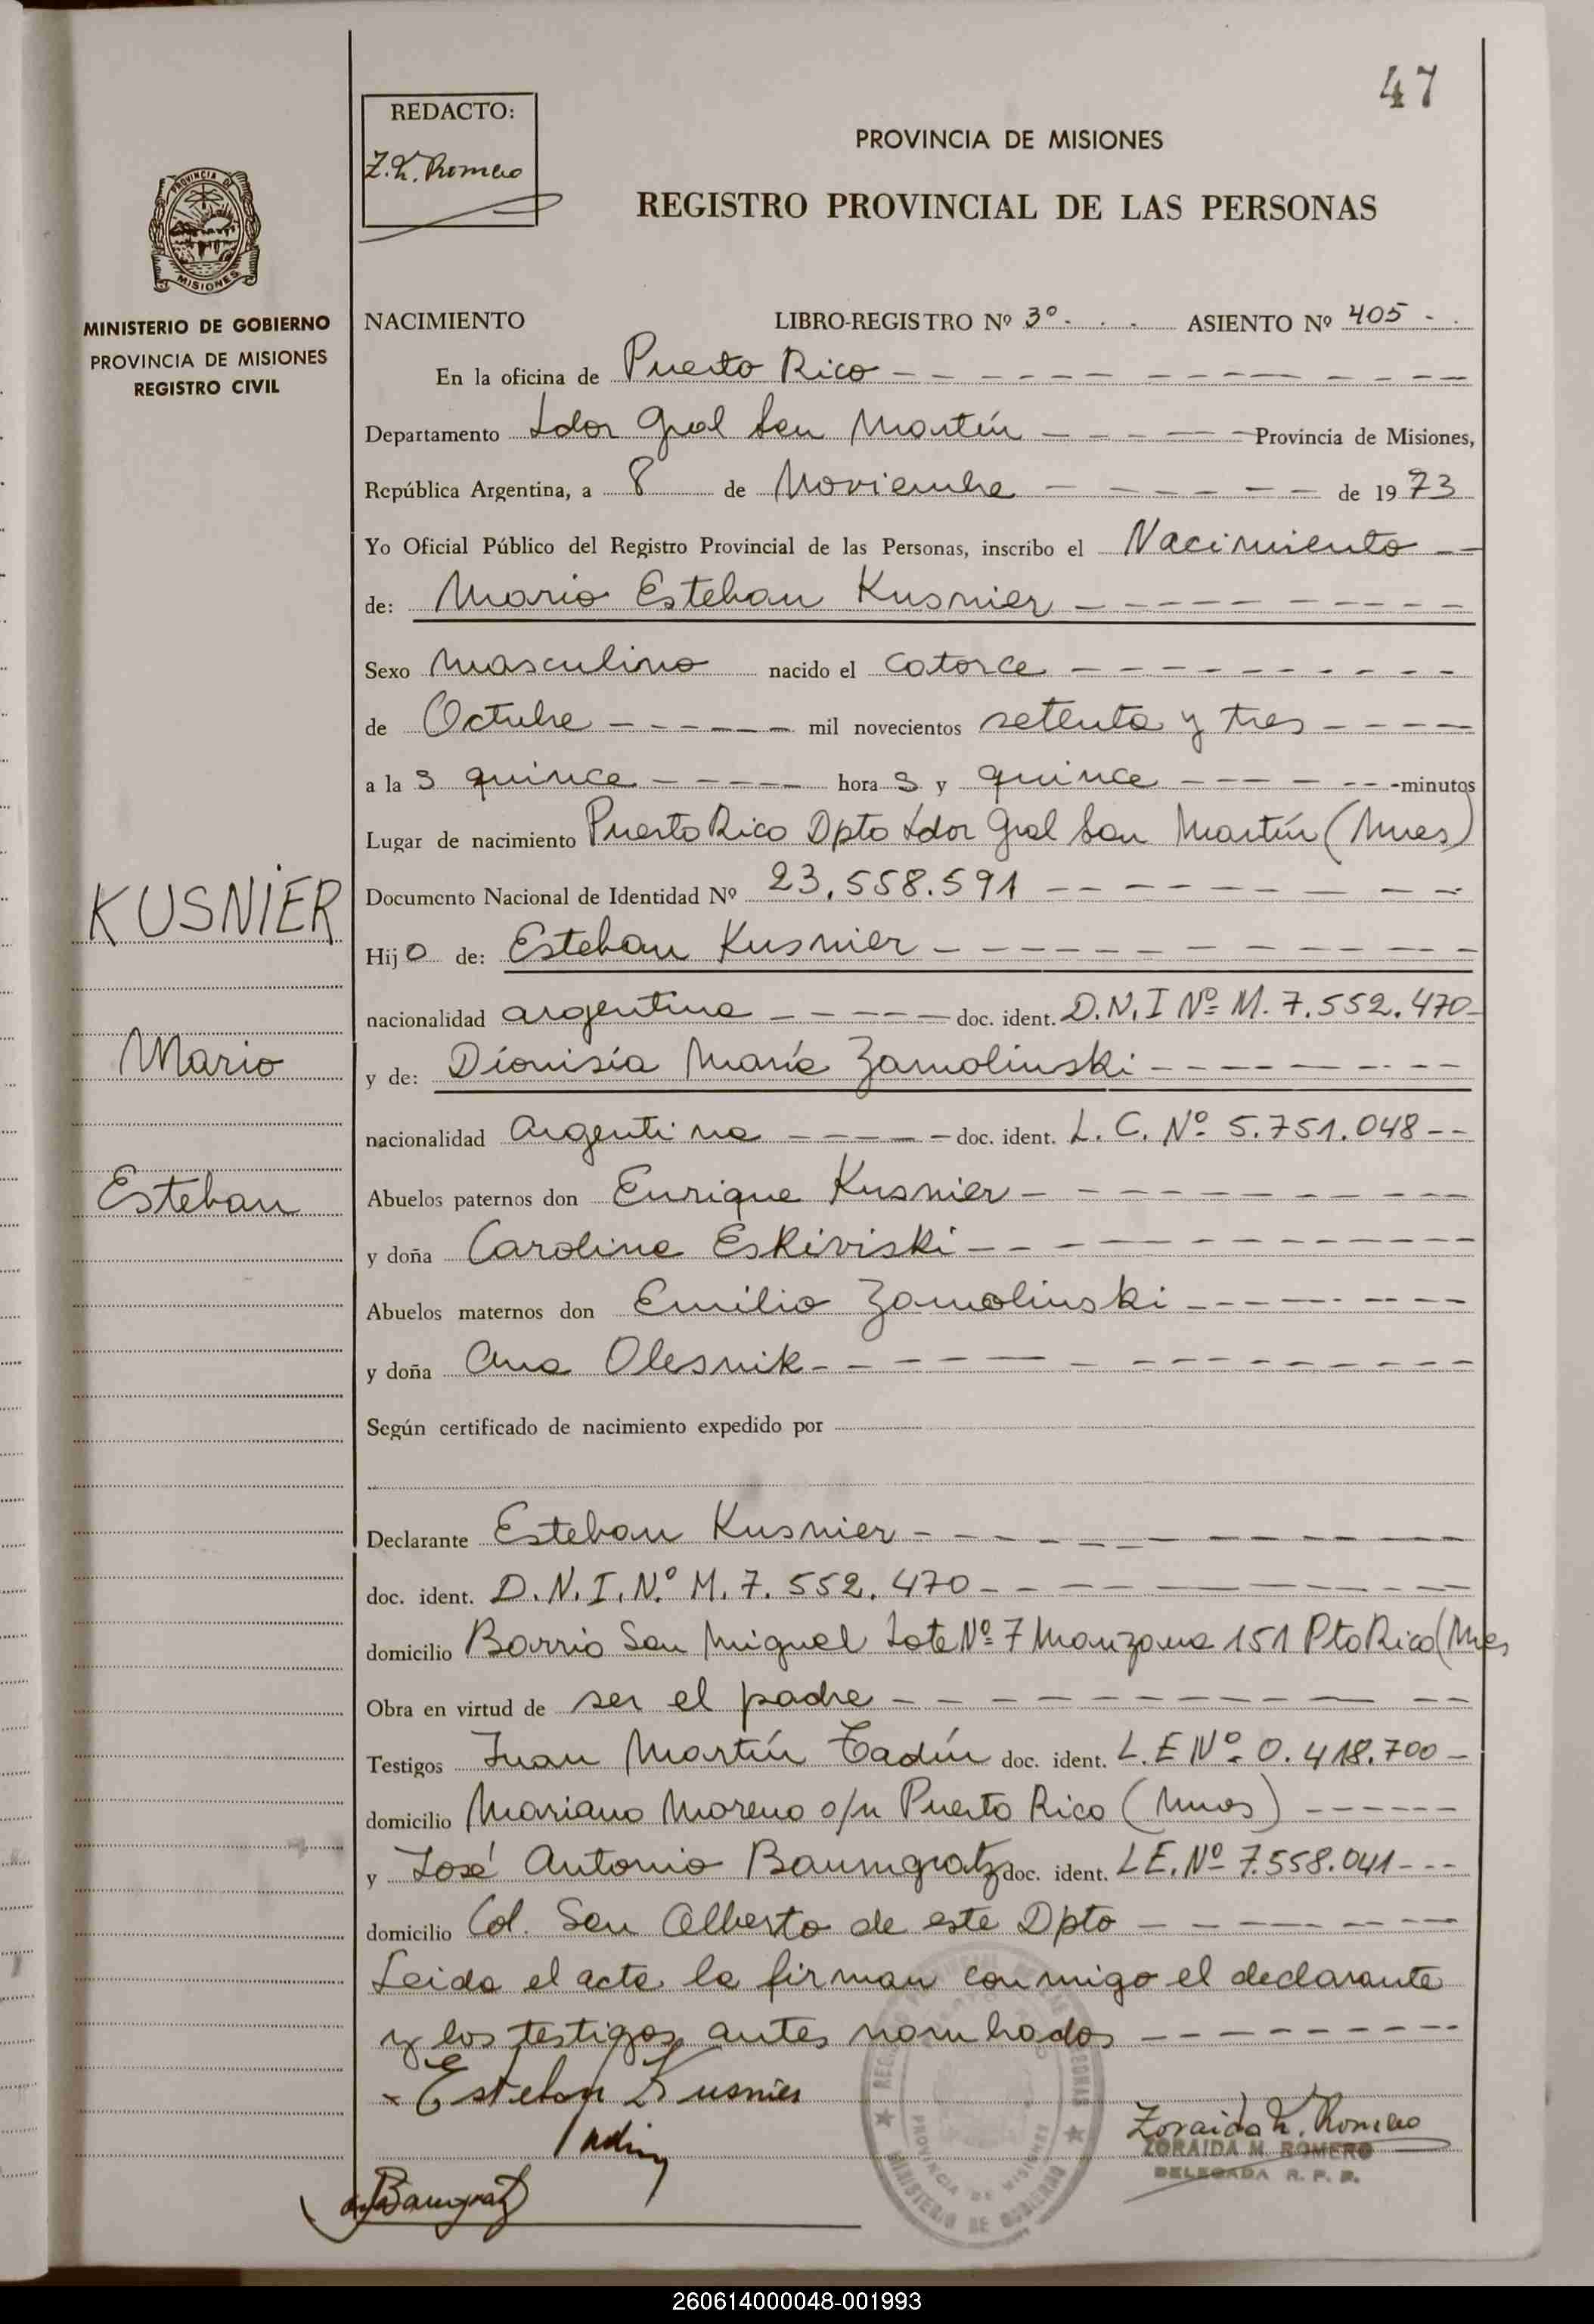 47
REDACTO:
Z. K. Romero
PROVINCIA DE MISIONES
REGISTRO PROVINCIAL DE LAS PERSONAS
PROVINCIA DE
MISIONES
MINISTERIO DE GOBIERNO
PROVINCIA DE MISIONES
REGISTRO CIVIL
NACIMIENTO LIBRO-REGISTRO Nº 3º ASIENTO Nº 405
En la oficina de Puerto Rico
Departamento Ldor Gral San Martín Provincia de Misiones,
República Argentina, a 8 de Noviembre de 1973
Yo Oficial Público del Registro Provincial de las Personas, inscribo el Nacimiento
de: Mario Esteban Kusnier
Sexo Masculino nacido el catorce
de Octubre mil novecientos setenta y tres
a la s quince hora s y quince minutos
Lugar de nacimiento Puerto Rico Dpto Ldor Gral San Martín (Mnes)
Documento Nacional de Identidad Nº 23.558.591
KUSNIER
Hijo de: Esteban Kusnier
nacionalidad argentina doc. ident. D.N.I Nº M. 7.552.470
Mario
y de: Dionisia María Zamolinski
nacionalidad Argentina doc. ident. L. C. Nº 5.751.048
Esteban
Abuelos paternos don Enrique Kusnier
y doña Carolina Eskiviski
Abuelos maternos don Emilio Zamolinski
y doña Ana Olesnik
Según certificado de nacimiento expedido por
Declarante Esteban Kusnier
doc. ident. D.N.I.Nº M. 7. 552. 470
domicilio Barrio San Miguel Lote Nº 7 Manzana 151 Pto Rico (Mnes
Obra en virtud de ser el padre
Testigos Juan Martín Tadín doc. ident. L.E Nº 0.418.700
domicilio Mariano Moreno s/n Puerto Rico (Mnes)
y José Antonio Baumgratz doc. ident. L.E. Nº 7.558.041
domicilio Col. San Alberto de este Dpto
Leida el acta la firman conmigo el declarante
y los testigos antes nombrados
Esteban Kusnier
Zoraida K. Romero
ZORAIDA M. ROMERO
DELEGADA R. P. P.
Tadin
Baumgratz
PROVINCIA DE MISIONES
MINISTERIO DE GOBIERNO
260614000048-001993